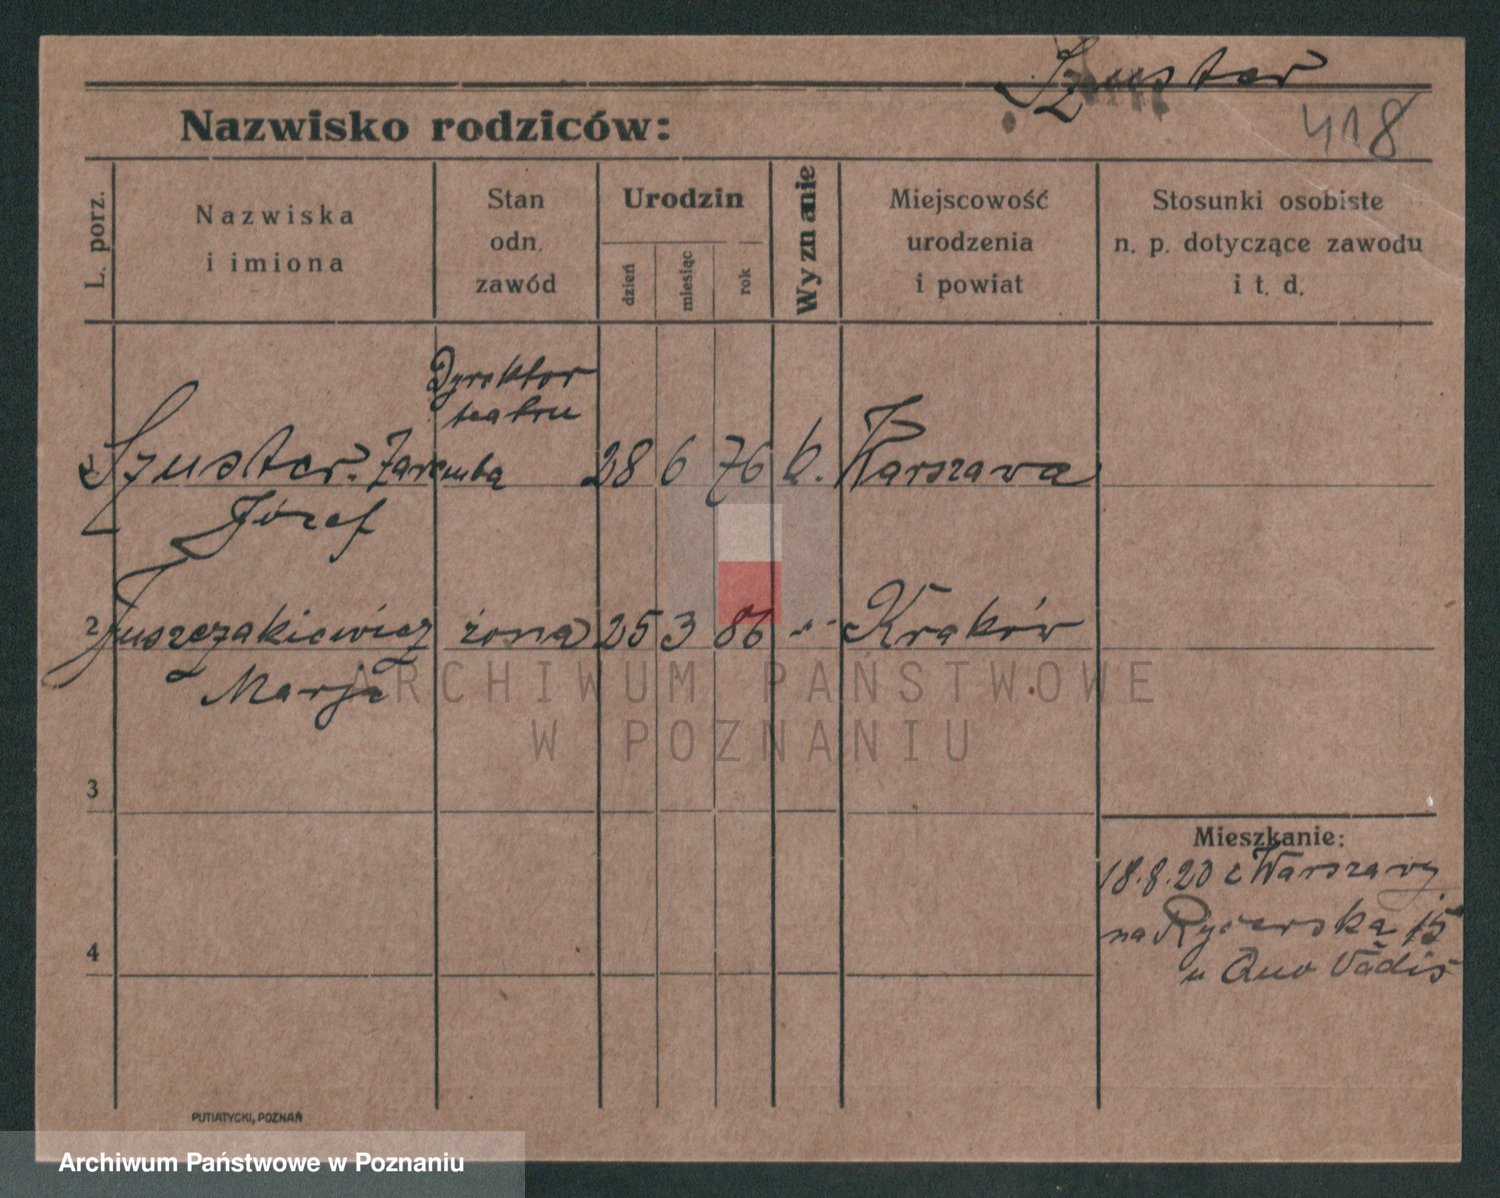 Szuster
418
Nazwisko rodziców:
L. porz.
Nazwiska
i imiona
Stan
odn.
zawód
Urodzin
dzień
miesiąc
rok
Wyznanie
Miejscowość
urodzenia
i powiat
Stosunki osobiste
n. p. dotyczące zawodu
i t. d.
Dyrektor
teatru
1 Szuster-Zaremba 28 6 76 k. Warszawa
Józef
2 Juszczakiewicz żona 25 3 86 -"- Kraków
Marja
ARCHIWUM PAŃSTWOWE
W POZNANIU
3
Mieszkanie:
18.8.20 z Warszawy
na Rycerską 15
u Quo Vadis
4
PUTIATYCKI, POZNAŃ
Archiwum Państwowe w Poznaniu